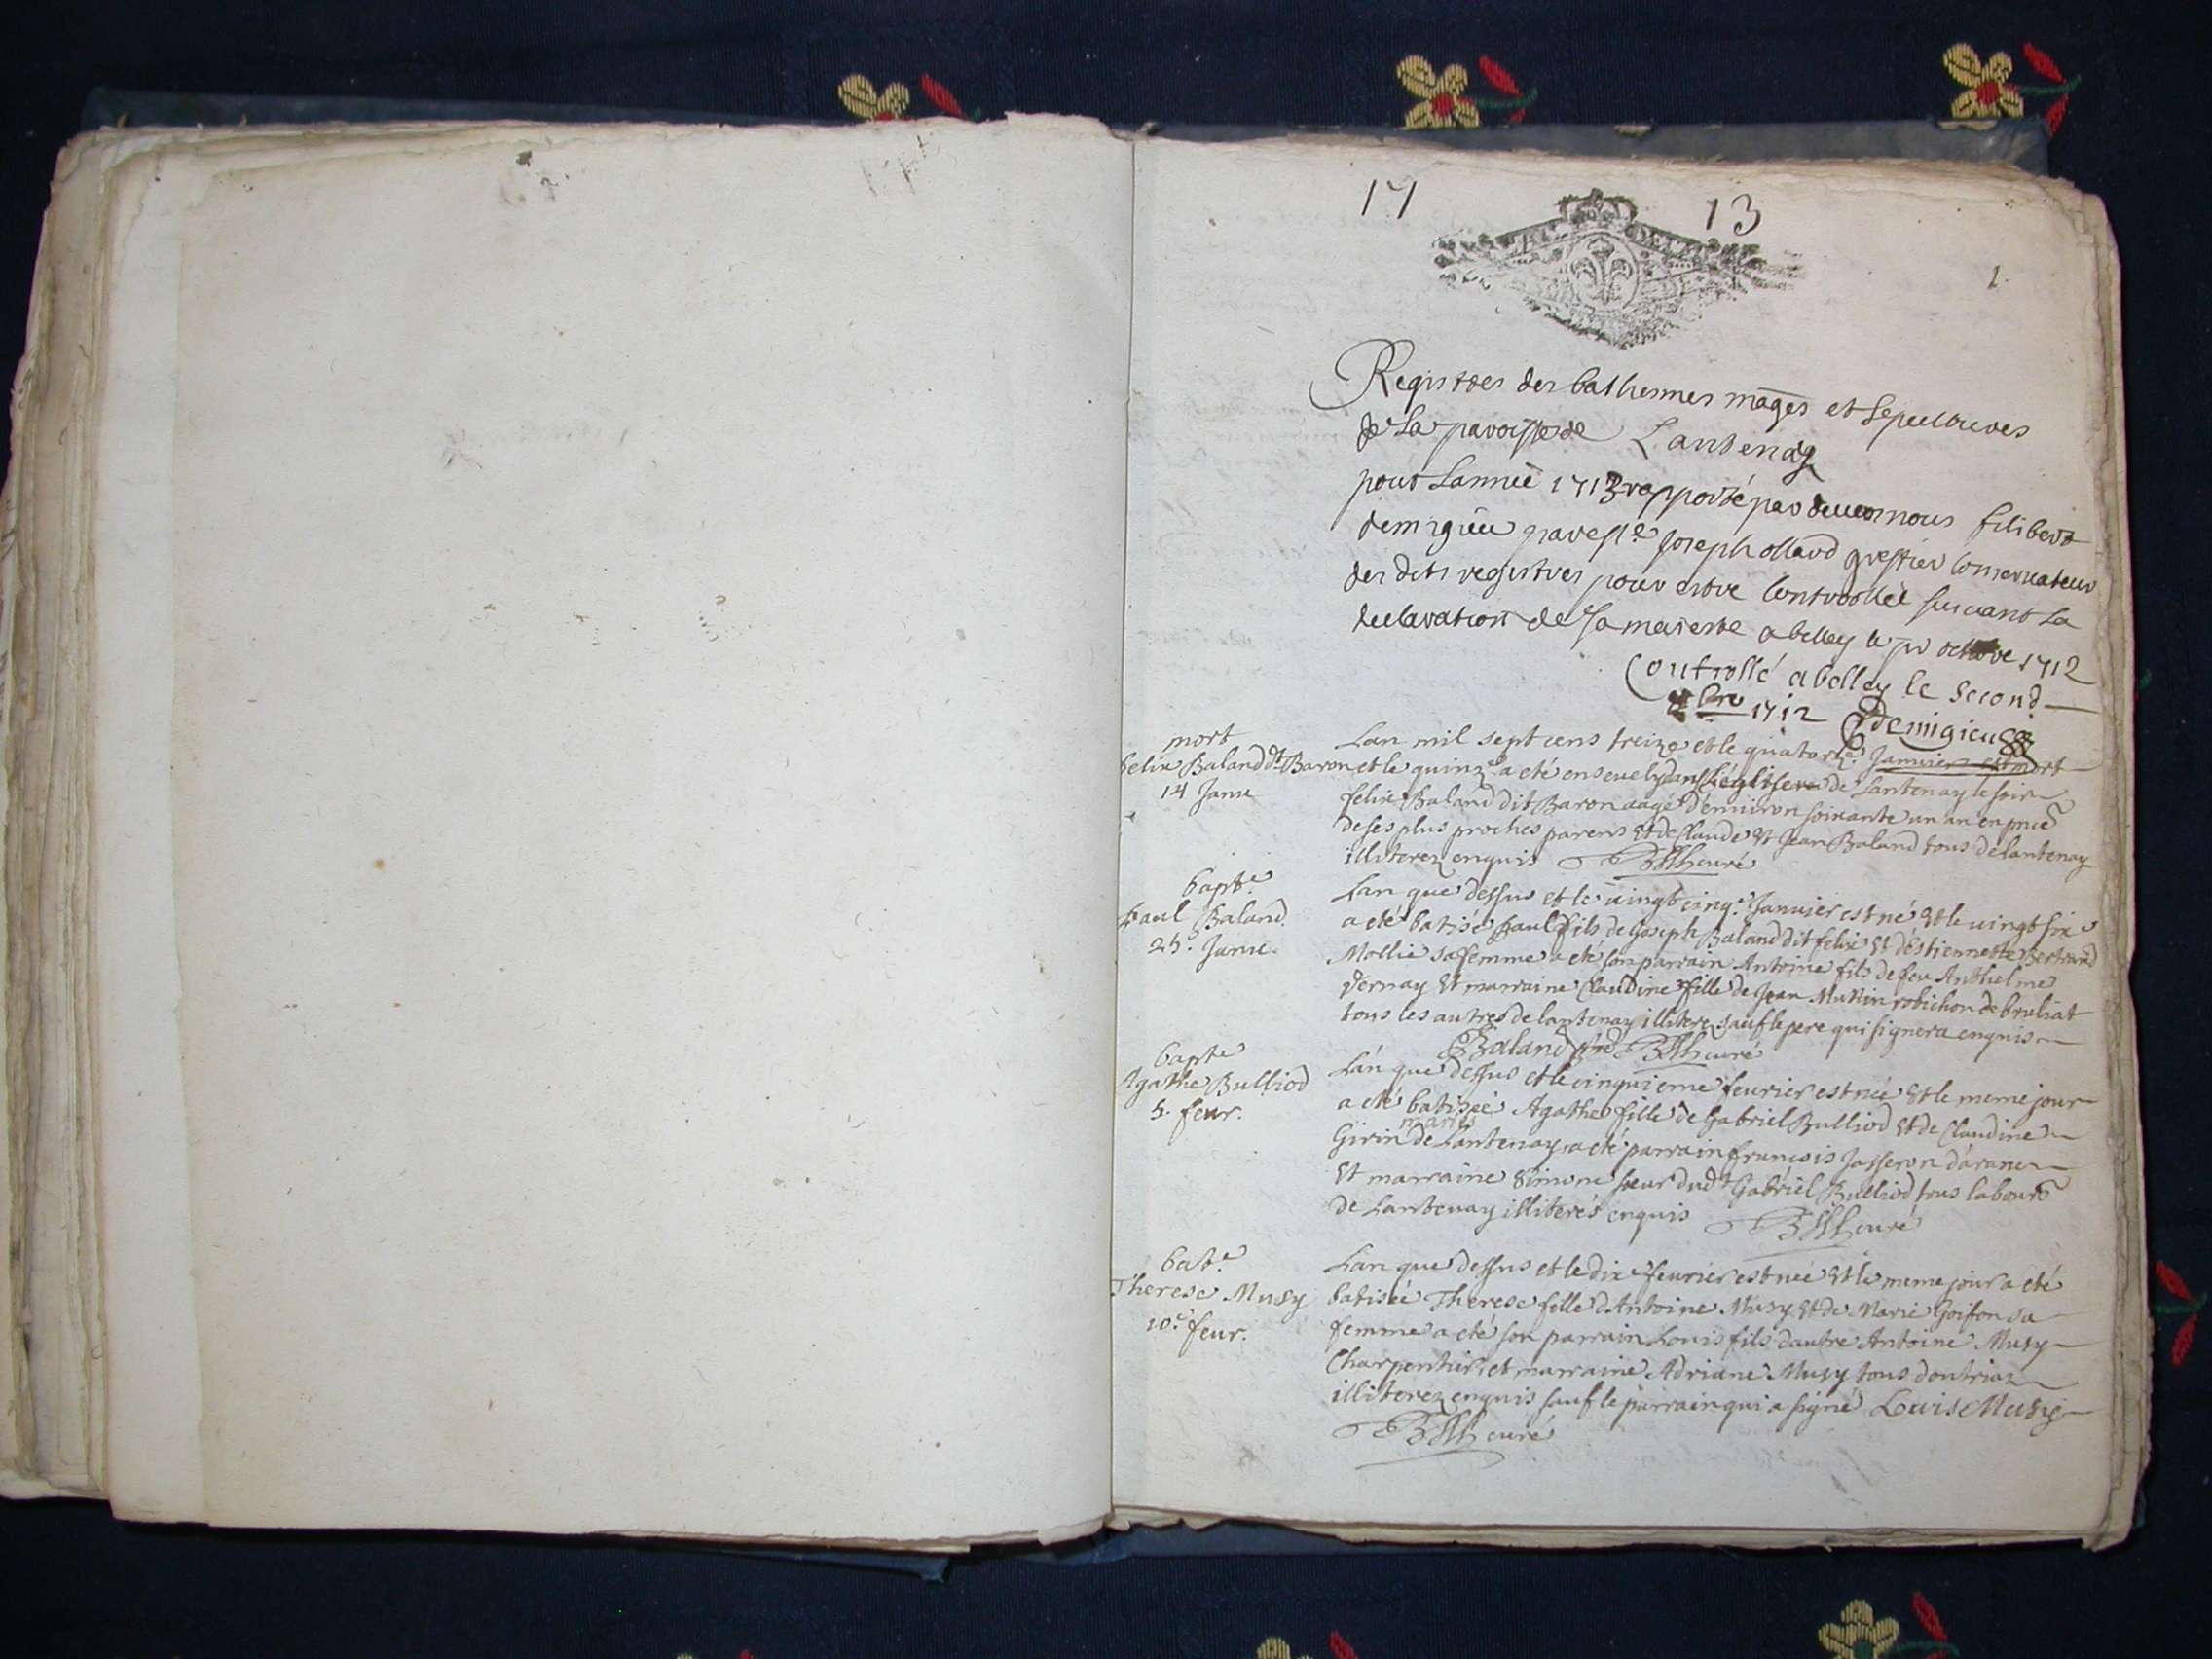 17 13
1.
Registres des bathesmes mages et sepultures
de La paroisse de Lantenay
pour Lannée 1713 rapporté par devers nous filibert
demigieu gravest Joseph ollard greffier conservateur
des dits registres pour estre controollée suivant La
declaration de sa majeste a belley le pr octobre 1712
Controllé a belley le second
8bre 1712 Demigieu
mort
felix Baland dt Baron
14 Janu
Lan mil sept cens treize et le quatorze Janvier est mort
et le quinze a eté ensevely dans l'eglise de Lantenay le soir
felix Baland dit Baron aagé d'environ soixante un an en pnce
de ses plus proches parens et de Claude et Jean Baland tous de lantenay
illiterez enquis curé
bapte
paul Baland
25e Janu.
Lan que dessus et le vingt cinqe Janvier est né et le vingt six
a eté batisé paul fils de Joseph Baland dit felix et d'Estiennette Bertrand
Mollie sa femme a eté son parrain Antoine fils de feu Anthelme
Vernay et marraine Claudine fille de Jean Mutin robichon de brulat
tous les autres de lantenay illiterez sauf le pere qui signera enquis
Baland curé
bapte
Agathe Bulliod
5. feur.
Lan que dessus et le cinquieme feurier est née et le meme jour
a eté batisée Agathe fille de Gabriel Bulliod et de Claudine
mariés
Girin de Lantenay, a eté parrain francois Jasseron d'arane
et marraine Simone sœur dud Gabriel Bulliod tous labours
de Lantenay illiterés enquis curé
bate
Therese Musy
10e feur.
Lan que dessus et le dix feurier est née et le meme jour a eté
batisée Therese fille d'Antoine Musy et de Marie Goifon sa
femme a eté son parrain Louis fils dautre Antoine Musy
Charpentier, et marraine Adriane Musy tous doutriaz
illiterez enquis sauf le parrain qui a signé Louis Musy
curé